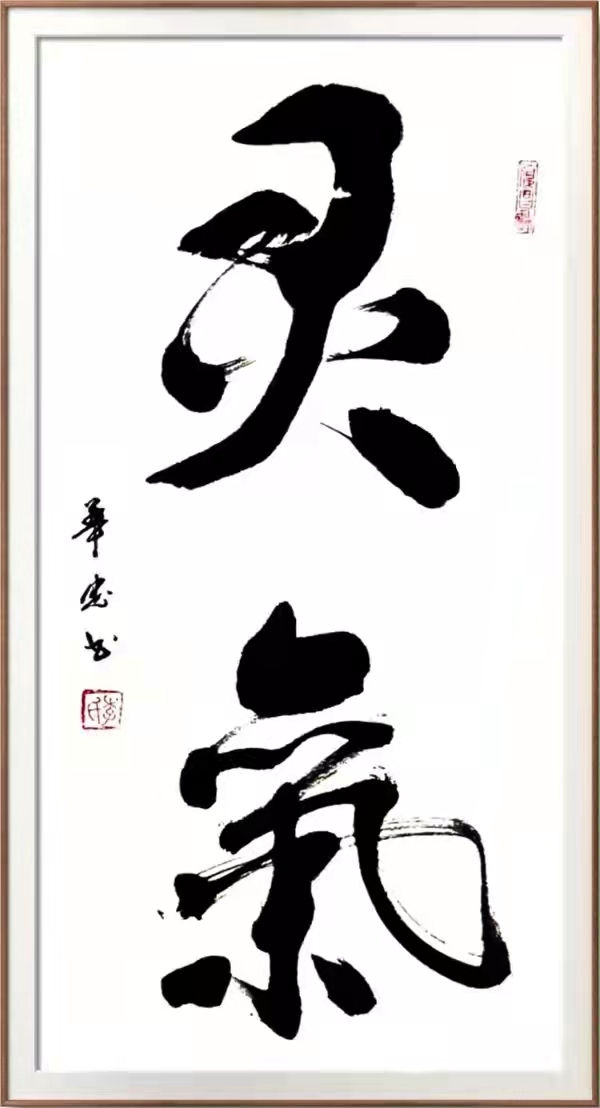 灵氣
華忠书